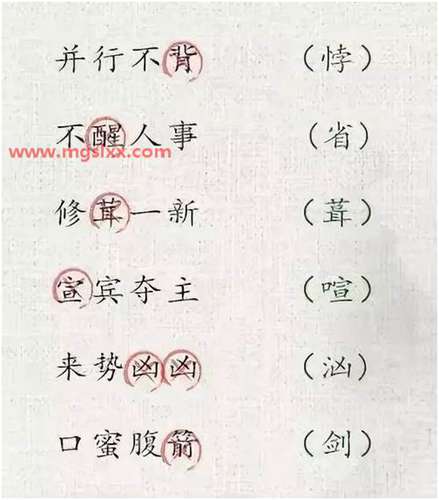 并行不背 （悖）
不醒人事 （省）
www.mgslxx.com
修茸一新 （葺）
宣宾夺主 （喧）
来势凶凶 （汹）
口蜜腹箭 （剑）